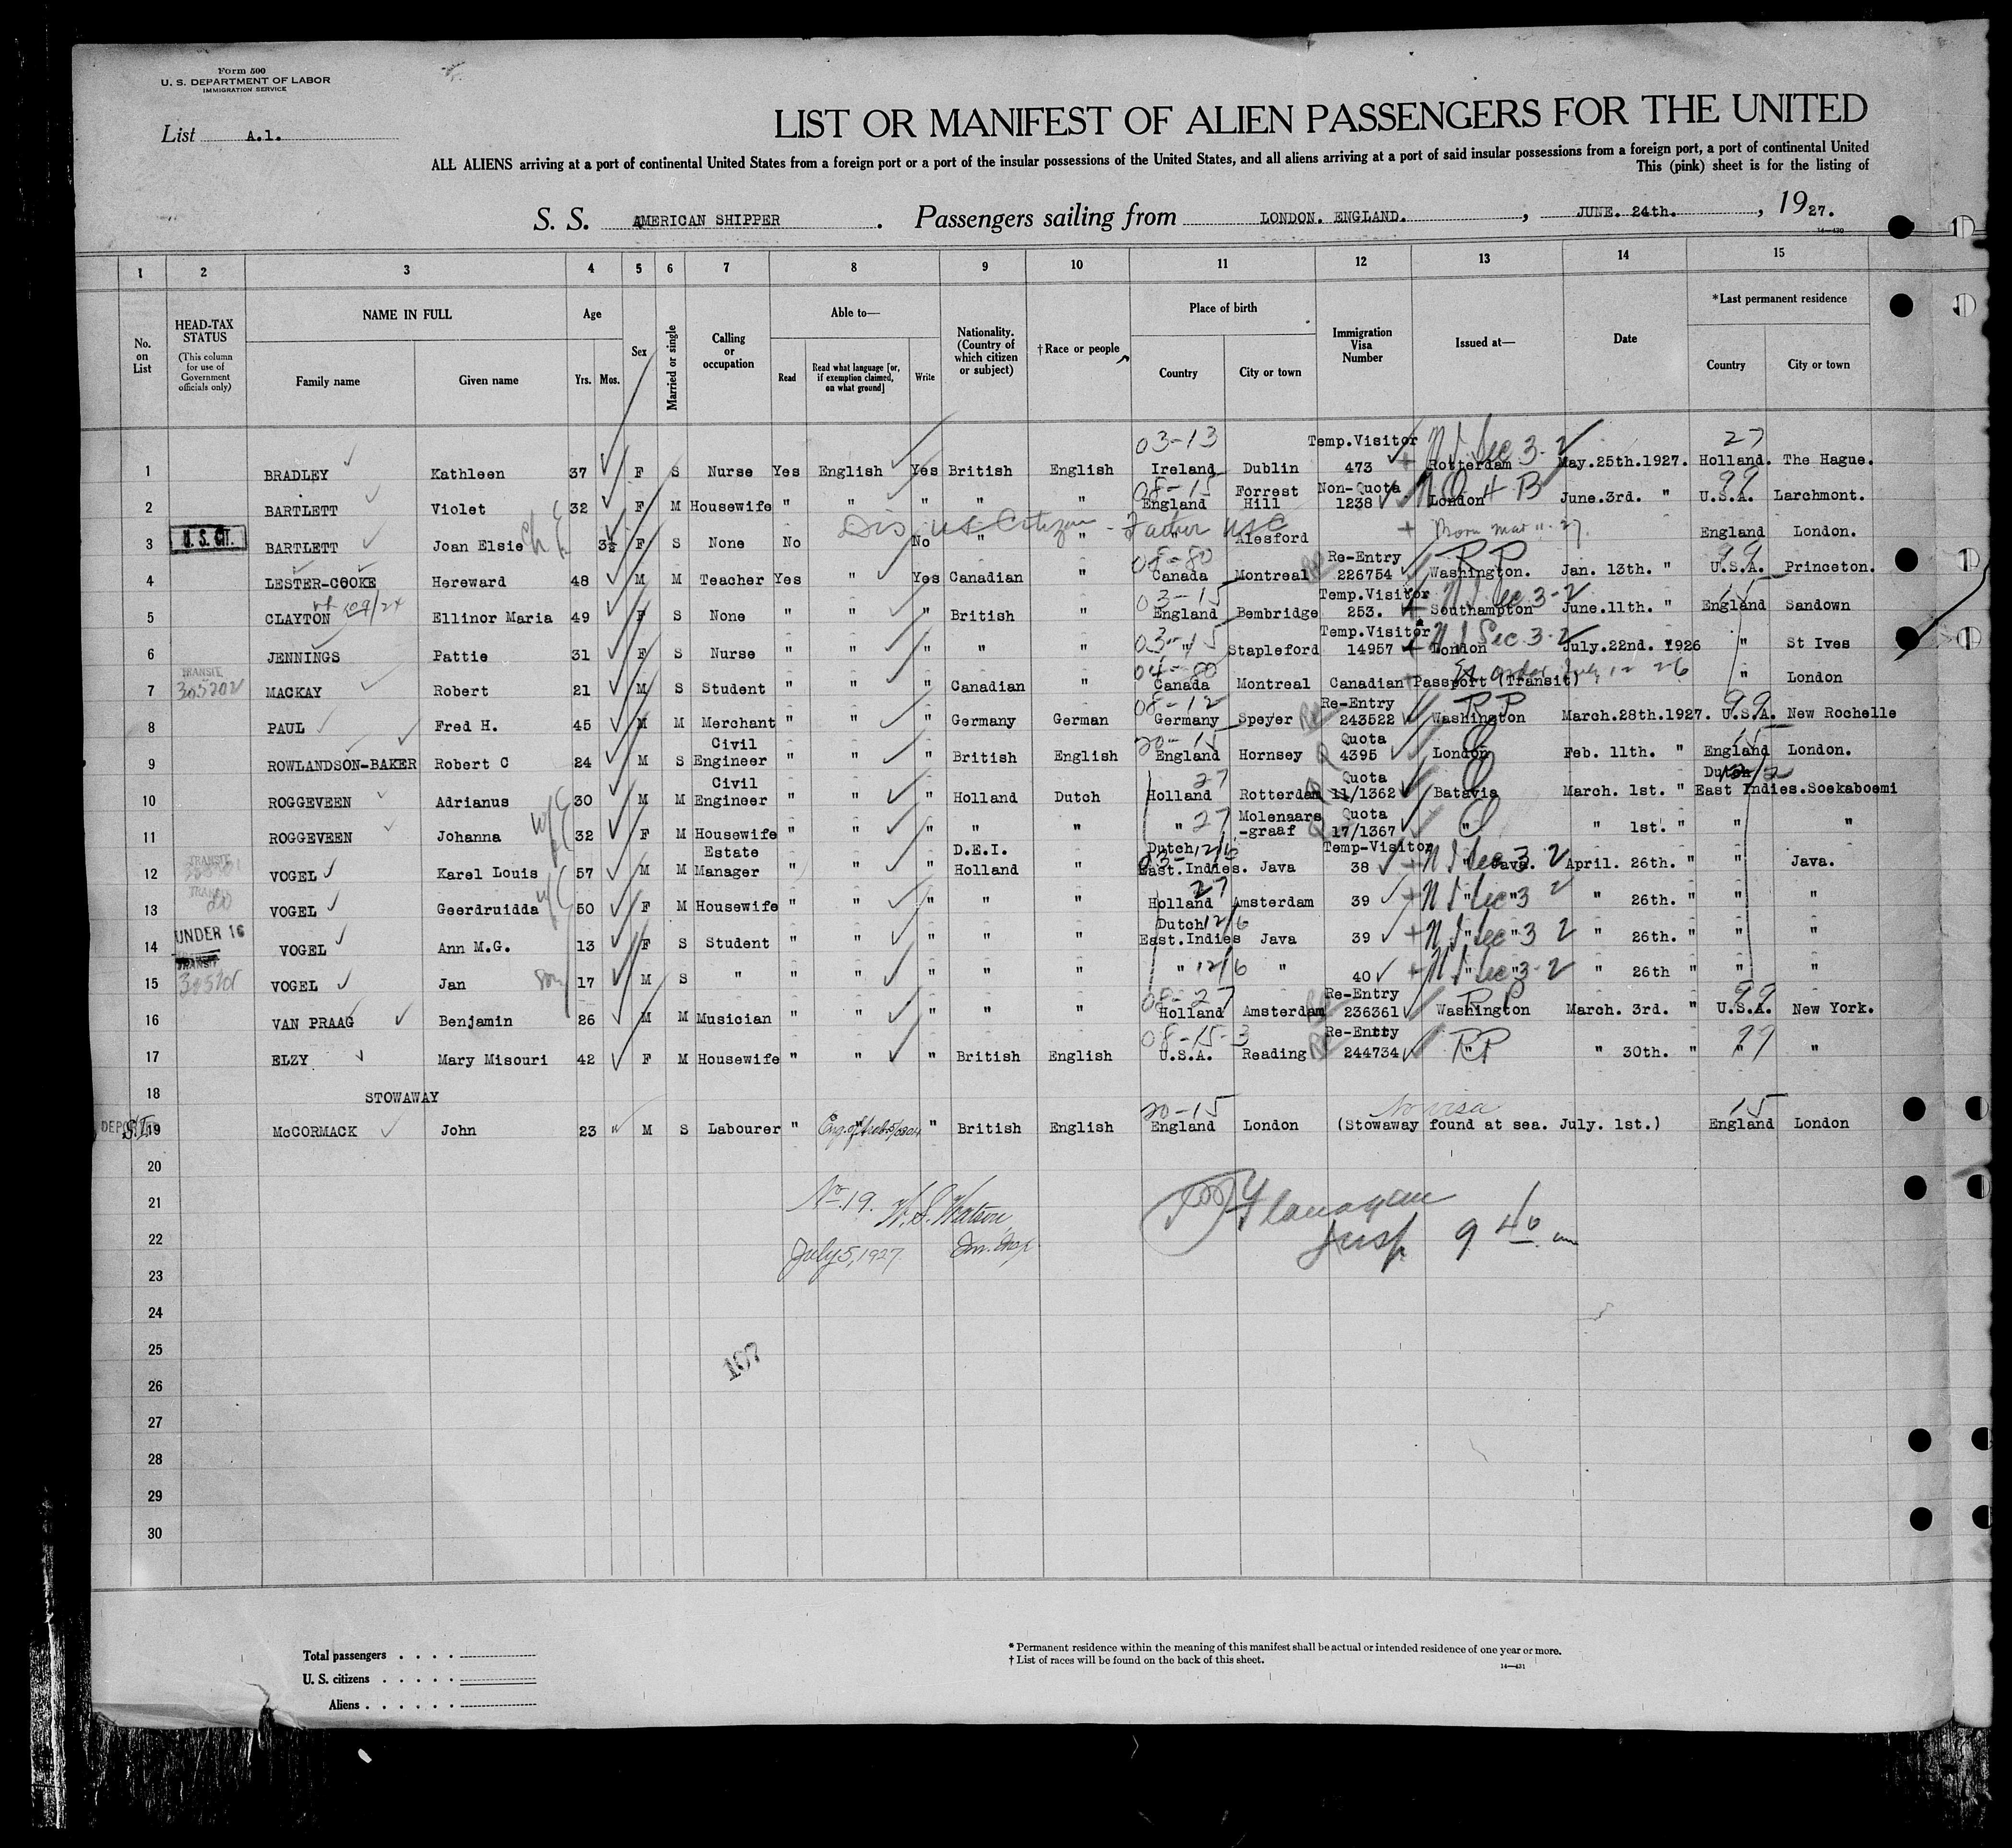 Form 500
U. S. DEPARTMENT OF LABOR
IMMIGRATION SERVICE
List A.1.
LIST OR MANIFEST OF ALIEN PASSENGERS FOR THE UNITED
ALL ALIENS arriving at a port of continental United States from a foreign port or a port of the insular possessions of the United States, and all aliens arriving at a port of said insular possessions from a foreign port, a port of continental United
This (pink) sheet is for the listing of
S. S. AMERICAN SHIPPER . Passengers sailing from LONDON. ENGLAND. , JUNE. 24th. , 1927.
14—430
1 2 3 4 5 6 7 8 9 10 11 12 13 14 15
No. on List
HEAD-TAX STATUS (This column for use of Government officials only)
NAME IN FULL Family name Given name
Age Yrs. Mos.
Sex
Married or single
Calling or occupation
Able to— Read Read what language [or, if exemption claimed, on what ground] Write
Nationality. (Country of which citizen or subject)
†Race or people
Place of birth Country City or town
Immigration Visa Number
Issued at—
Date
*Last permanent residence Country City or town
03-13 Temp.Visitor N I Sec 3-2 27
1 BRADLEY Kathleen 37 F S Nurse Yes English Yes British English Ireland Dublin 473 Rotterdam May.25th.1927. Holland. The Hague.
08-15 Forrest Non-Quota 99
2 BARTLETT Violet 32 F M Housewife " " " " " England Hill 1238 London June.3rd. " U.S.A. Larchmont.
Dis US Citizen - Father USC
U. S. CIT.
3 BARTLETT Joan Elsie ch 3½ F S None No No " " " Alesford Born Mar 11-27. England London.
08-80 Re-Entry RP 99
4 LESTER-COOKE Hereward 48 M M Teacher Yes " Yes Canadian " Canada Montreal 226754 Washington. Jan. 13th. " U.S.A. Princeton.
03-15 Temp.Visitor N I Sec 3-2 15
5 CLAYTON Ellinor Maria 49 F S None " " " British " England Bembridge 253. Southampton June.11th. " England Sandown
03-15 Temp.Visitor N I Sec 3-2
6 JENNINGS Pattie 31 F S Nurse " " " " " " Stapleford 14957 London July.22nd. 1926 " St Ives
TRANSIT 305202 04-80
7 MACKAY Robert 21 M S Student " " " Canadian " Canada Montreal Canadian Passport (Transit) " London
08-12 Re-Entry RP 99
8 PAUL Fred H. 45 M M Merchant " " " Germany German Germany Speyer 243522 Washington March.28th.1927. U.S.A. New Rochelle
Civil 20-15 Quota Q 15
9 ROWLANDSON-BAKER Robert C 24 M S Engineer " " " British English England Hornsey 4395 London Feb. 11th. " England London.
Civil 27 Quota Q Dutch 12/2
10 ROGGEVEEN Adrianus 30 M M Engineer " " " Holland Dutch Holland Rotterdam 11/1362 Batavia March. 1st. " East Indies. Soekaboemi
27 Molenaars Quota Q
11 ROGGEVEEN Johanna 32 F M Housewife " " " " " " -graaf 17/1367 " " 1st. " " "
TRANSIT Estate D.E.I. Dutch 12/6 Temp-Visitor N I Sec 3 2
12 VOGEL Karel Louis 57 M M Manager " " " Holland " East.Indies. Java 38 " Java. April. 26th. " " Java.
TRANSIT do 27 N I Sec 3 2
13 VOGEL Geerdruidda 50 F M Housewife " " " " " Holland Amsterdam 39 " " " 26th. " " "
UNDER 16 Dutch 12/6 N I Sec 3 2
14 VOGEL Ann M.G. 13 F S Student " " " " " East.Indies Java 39 " " " 26th. " " "
TRANSIT 12/6 N I Sec 3-2
15 VOGEL Jan son 17 M S " " " " " " " " 40 " " " 26th " " "
08-27 Re-Entry RP 99
16 VAN PRAAG Benjamin 26 M M Musician " " " " " Holland Amsterdam 236361 Washington March. 3rd. " U.S.A. New York.
08-15-3 Re-Entry RP 99
17 ELZY Mary Misouri 42 F M Housewife " " " British English U.S.A. Reading 244734 " " 30th. " " "
18 STOWAWAY
20-15 No visa 15
19 McCORMACK John 23 M S Labourer " " British English England London (Stowaway found at sea. July. 1st.) England London
20
21 No. 19. W. S. Watson
22 July 5, 1927. Im. Insp. Flanagan Insp 9 40 am
23
24
25
107
26
27
28
29
30
Total passengers
U. S. citizens
Aliens
* Permanent residence within the meaning of this manifest shall be actual or intended residence of one year or more.
† List of races will be found on the back of this sheet.
14—431